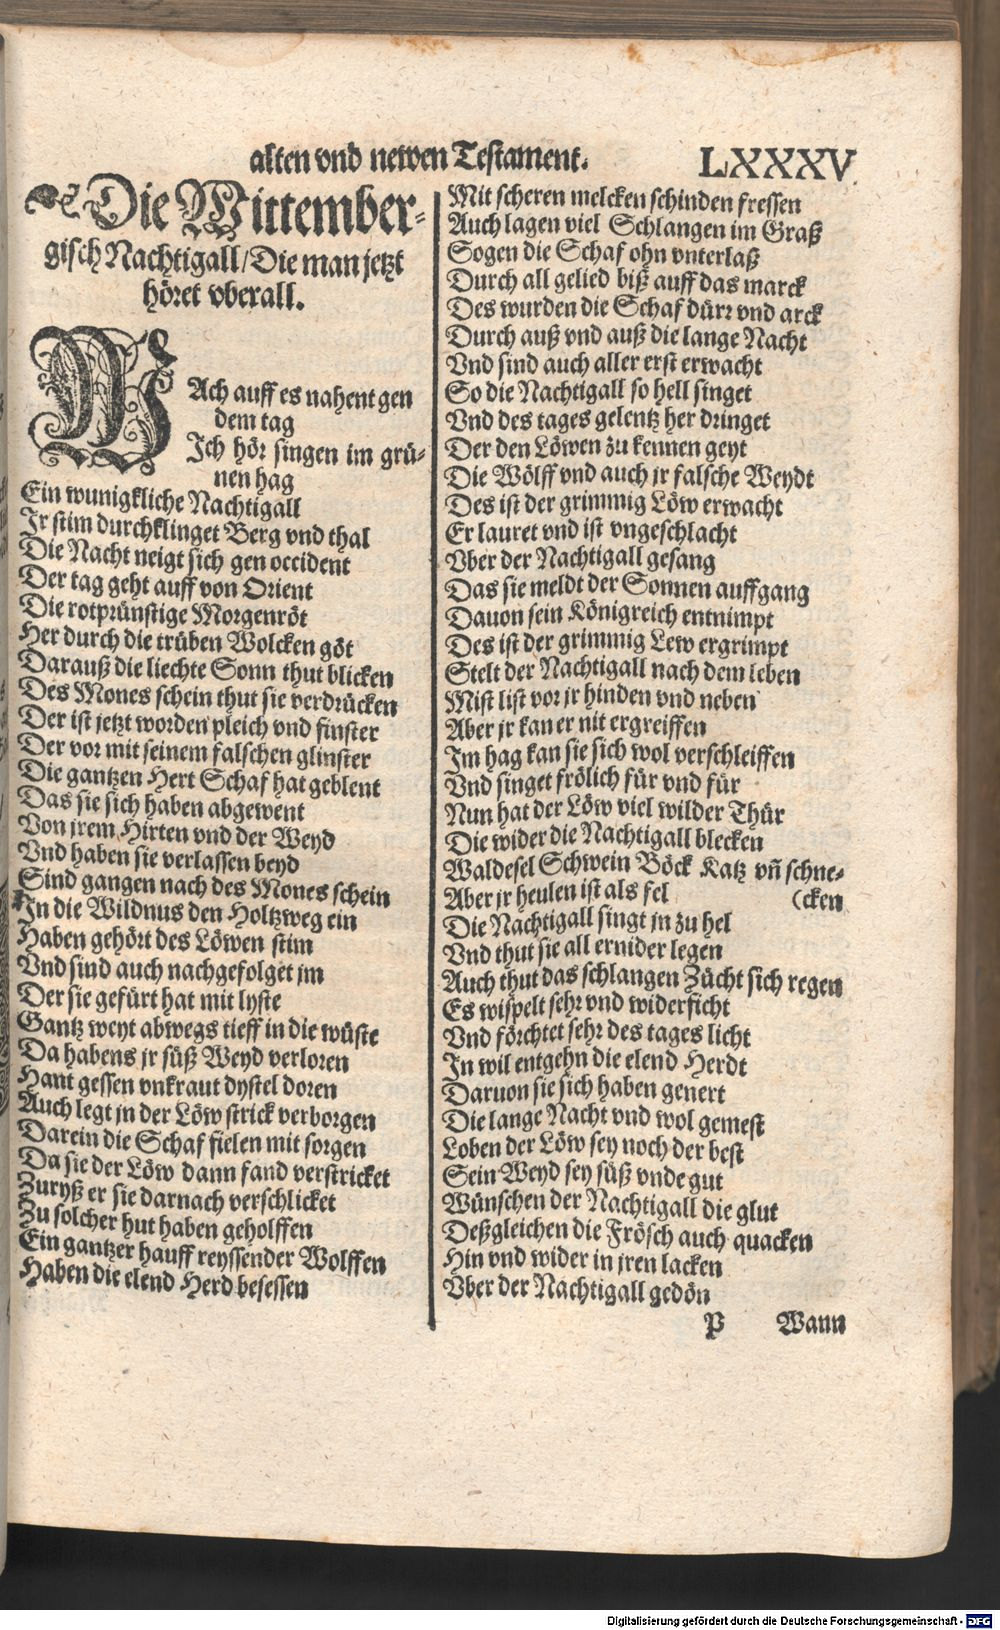 alten vnd newen Testament. LXXXV.
Die Wittember-
gisch Nachtigall/Die man jetzt
höret vberall.
WAch auff es nahent gen
dem tag
Ich hör singen im grü-
nen hag
Ein wunigkliche Nachtigall
Ir stim durchklinget Berg vnd thal
Die Nacht neigt sich gen occident
Der tag geht auff von Orient
Die rotprünstige Morgenröt
Her durch die trüben Wolcken göt
Darauß die liechte Sonn thut blicken
Des Mones schein thut sie verdrücken
Der ist jetzt worden pleich vnd finster
Der vor mit seinem falschen glinster
Die gantzen Hert Schaf hat geblent
Das sie sich haben abgewent
Von jrem Hirten vnd der Weyd
Vnd haben sie verlassen beyd
Sind gangen nach des Mones schein
In die Wildnus den Holtzweg ein
Haben gehört des Löwen stim
Vnd sind auch nachgefolget im
Der sie gefürt hat mit lyste
Gantz weyt abwegs tieff in die wüste
Da habens jr süß Weyd verloren
Hant gessen vnkraut dystel doren
Auch legt jn der Löw strick verborgen
Darein die Schaf fielen mit sorgen
Da sie der Löw dann fand verstricket
Zuryß er sie darnach verschlicket
Zu solcher hut haben geholffen
Ein gantzer hauff reyssender Wolffen
Haben die elend Herd besessen
Mit scheren melcken schinden fressen
Auch lagen viel Schlangen im Graß
Sogen die Schaf ohn vnterlaß
Durch all gelied biß auff das marck
Des wurden die Schaf dürr vnd arck
Durch auß vnd auß die lange Nacht
Vnd sind auch aller erst erwacht
So die Nachtigall so hell singet
Vnd des tages gelentz her dringet
Der den Löwen zu kennen geyt
Die Wölff vnd auch jr falsche Weydt
Des ist der grimmig Löw erwacht
Er lauret vnd ist vngeschlacht
Vber der Nachtigall gesang
Das sie meldt der Sonnen auffgang
Dauon sein Königreich entnimpt
Des ist der grimmig Lew ergrimpt
Stelt der Nachtigall nach dem leben
Mist list vor jr hinden vnd neben
Aber jr kan er nit ergreiffen
Im hag kan sie sich wol verschleiffen
Vnd singet frölich für vnd für
Nun hat der Löw viel wilder Thür
Die wider die Nachtigall blecken
Waldesel Schwein Böck Katz vñ schne-
Aber jr heulen ist als fel (cken
Die Nachtigall singt jn zu hel
Vnd thut sie all ernider legen
Auch thut das schlangen Zücht sich regen
Es wispelt sehr vnd widerficht
Vnd förchtet sehr des tages licht
In wil entgehn die elend Herdt
Daruon sie sich haben genert
Die lange Nacht vnd wol gemest
Loben der Löw sey noch der best
Sein Weyd sey süß vnde gut
Wünschen der Nachtigall die glut
Deßgleichen die Frösch auch quacken
Hin vnd wider in jren lacken
Vber der Nachtigall gedön
P Wann
Digitalisierung gefördert durch die Deutsche Forschungsgemeinschaft - DFG